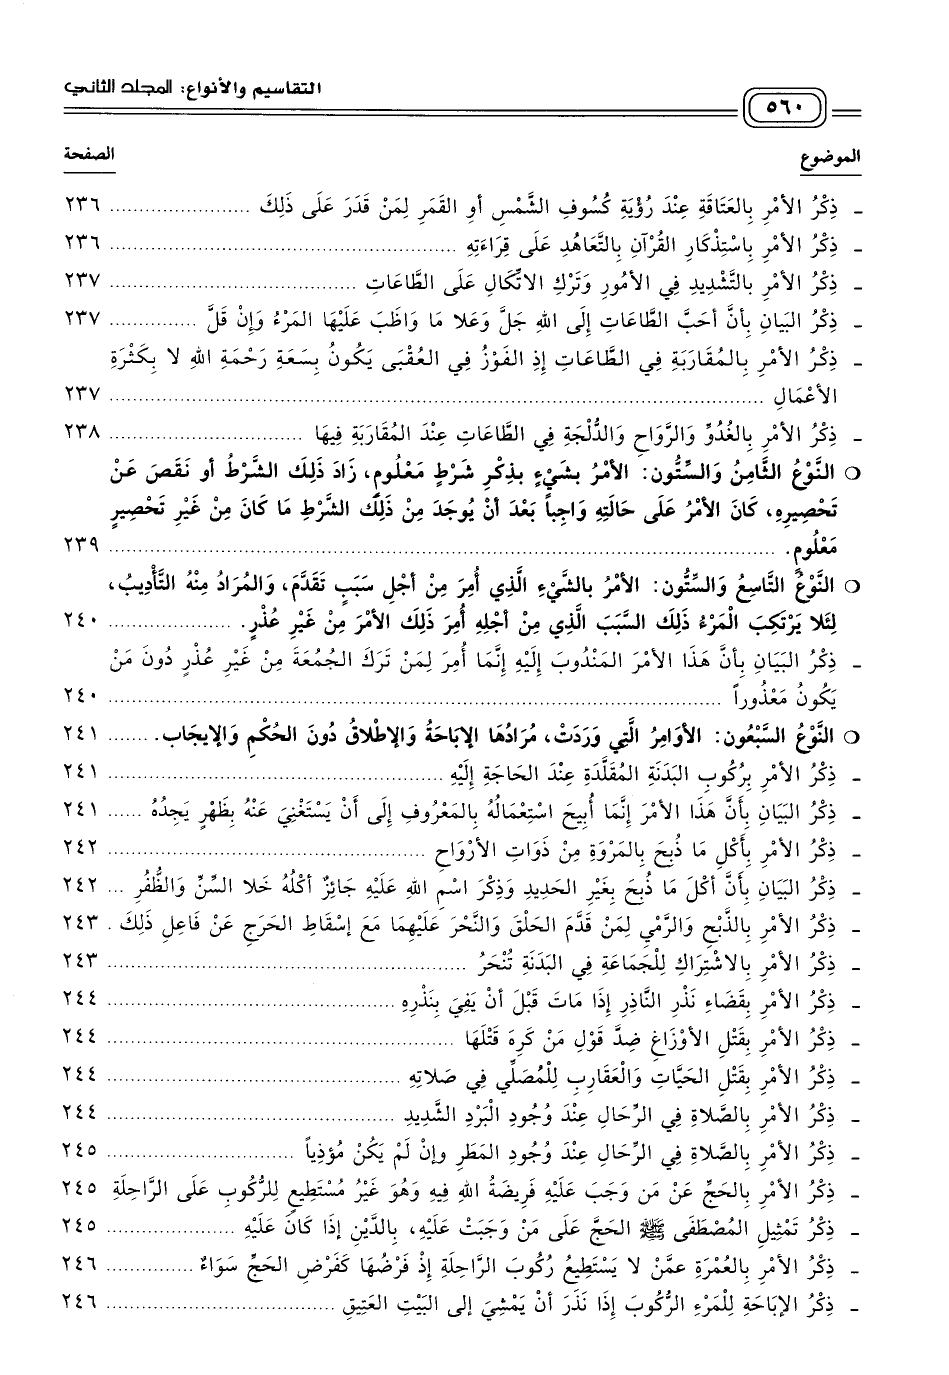 التقاسيم والأنواع: المجلد الثاني
٥٦٠
الموضوع الصفحة
ـ ذِكْرُ الأَمْرِ بِالعَتَاقَةِ عِنْدَ رُؤْيَةِ كُسُوفِ الشَّمْسِ أوِ القَمَرِ لِمَنْ قَدَرَ عَلَى ذَلِكَ ........................ ٢٣٦
ـ ذِكْرُ الأَمْرِ بِاسْتِذْكَارِ القُرْآنِ بِالتَّعَاهُدِ عَلَى قِرَاءَتِهِ ........................ ٢٣٦
ـ ذِكْرُ الأَمْرِ بِالتَّشْدِيدِ فِي الأُمُورِ وَتَرْكِ الاتِّكَالِ عَلَى الطَّاعَاتِ ........................ ٢٣٧
ـ ذِكْرُ البَيَانِ بِأَنَّ أحَبَّ الطَّاعَاتِ إِلَى اللهِ جَلَّ وَعَلا مَا وَاظَبَ عَلَيْهَا المَرْءُ وَإِنْ قَلَّ .............. ٢٣٧
ـ ذِكْرُ الأَمْرِ بِالمُقَارَبَةِ فِي الطَّاعَاتِ إِذِ الفَوْزُ فِي العُقْبَى يَكُونُ بِسَعَةِ رَحْمَةِ اللهِ لا بِكَثْرَةِ
الأعْمَالِ ........................ ٢٣٧
ـ ذِكْرُ الأَمْرِ بِالغُدُوِّ وَالرَّوَاحِ وَالدُّلْجَةِ فِي الطَّاعَاتِ عِنْدَ المُقَارَبَةِ فِيهَا ........................ ٢٣٨
○ النَّوْعُ الثَّامِنُ وَالسِّتُّون: الأَمْرُ بِشَيْءٍ بِذِكْرِ شَرْطٍ مَعْلُومٍ، زَادَ ذَلِكَ الشَّرْطُ أو نَقَصَ عَنْ
تَحْصِيرِهِ، كَانَ الأَمْرُ عَلَى حَالَتِهِ وَاجِباً بَعْدَ أنْ يُوجَدَ مِنْ ذَلِكَ الشَّرْطِ مَا كَانَ مِنْ غَيْرِ تَحْصِيرٍ
مَعْلُومٍ. ........................ ٢٣٩
○ النَّوْعُ التَّاسِعُ وَالسِّتُّون: الأَمْرُ بالشَّيْءِ الَّذِي أُمِرَ مِنْ أجْلِ سَبَبٍ تَقَدَّمَ، وَالمُرَادُ مِنْهُ التَّأْدِيبُ،
لِئَلا يَرْتَكِبَ الْمَرْءُ ذَلِكَ السَّبَبَ الَّذِي مِنْ أجْلِهِ أُمِرَ ذَلِكَ الأَمْرَ مِنْ غَيْرِ عُذْرٍ. ........................ ٢٤٠
ـ ذِكْرُ البَيَانِ بِأَنَّ هَذَا الأَمْرَ المَنْدُوبَ إِلَيْهِ إِنَّمَا أُمِرَ لِمَنْ تَرَكَ الجُمُعَةَ مِنْ غَيْرِ عُذْرٍ دُونَ مَنْ
يَكُونُ مَعْذُوراً ........................ ٢٤٠
○ النَّوْعُ السَّبْعُون: الأَوَامِرُ الَّتِي وَرَدَتْ، مُرَادُهَا الإِبَاحَةُ وَالإِطْلاقُ دُونَ الحُكْمِ وَالإيجَابِ. ....... ٢٤١
ـ ذِكْرُ الأَمْرِ بِرُكُوبِ البَدَنَةِ المُقَلَّدَةِ عِنْدَ الحَاجَةِ إِلَيْهِ ........................ ٢٤١
ـ ذِكْرُ البَيَانِ بِأَنَّ هَذَا الأَمْرَ إِنَّمَا أُبِيحَ اسْتِعْمَالُهُ بِالمَعْرُوفِ إِلَى أَنْ يَسْتَغْنِيَ عَنْهُ بِظَهْرٍ يَجِدُهُ ...... ٢٤١
ـ ذِكْرُ الأَمْرِ بِأَكْلِ مَا ذُبِحَ بِالمَرْوَةِ مِنْ ذَوَاتِ الأرْوَاحِ ........................ ٢٤٢
ـ ذِكْرُ البَيَانِ بِأَنَّ أكْلَ مَا ذُبِحَ بِغَيْرِ الحَدِيدِ وَذِكْرَ اسْمِ اللهِ عَلَيْهِ جَائِزٌ أكْلُهُ خَلا السِّنِّ وَالظُّفُرِ ... ٢٤٢
ـ ذِكْرُ الأَمْرِ بِالذَّبْحِ وَالرَّمْيِ لِمَنْ قَدَّمَ الحَلْقَ وَالنَّحْرَ عَلَيْهِمَا مَعَ إِسْقَاطِ الحَرَجِ عَنْ فَاعِلِ ذَلِكَ . ٢٤٣
ـ ذِكْرُ الأَمْرِ بِالاشْتِرَاكِ لِلْجَمَاعَةِ فِي البَدَنَةِ تُنْحَرُ ........................ ٢٤٣
ـ ذِكْرُ الأَمْرِ بِقَضَاءِ نَذْرِ النَّاذِرِ إِذَا مَاتَ قَبْلَ أَنْ يَفِيَ بِنَذْرِهِ ........................ ٢٤٤
ـ ذِكْرُ الأَمْرِ بِقَتْلِ الأَوْزَاغِ ضِدَّ قَوْلِ مَنْ كَرِهَ قَتْلَهَا ........................ ٢٤٤
ـ ذِكْرُ الأَمْرِ بِقَتْلِ الحَيَّاتِ وَالعَقَارِبِ لِلْمُصَلِّي فِي صَلاتِهِ ........................ ٢٤٤
ـ ذِكْرُ الأَمْرِ بِالصَّلاةِ فِي الرِّحَالِ عِنْدَ وُجُودِ البَرْدِ الشَّدِيدِ ........................ ٢٤٤
ـ ذِكْرُ الأَمْرِ بِالصَّلاةِ فِي الرِّحَالِ عِنْدَ وُجُودِ المَطَرِ وإنْ لَمْ يَكُنْ مُؤْذِياً ........................ ٢٤٥
ـ ذِكْرُ الأَمْرِ بِالحَجِّ عَنْ مَن وَجَبَ عَلَيْهِ فَرِيضَةُ اللهِ فِيهِ وَهُوَ غَيْرُ مُسْتَطِيعٍ لِلرُّكُوبِ عَلَى الرَّاحِلَةِ ٢٤٥
ـ ذِكْرُ تَمْثِيلِ المُصْطَفَى ﷺ الحَجَّ عَلَى مَنْ وَجَبَتْ عَلَيْهِ، بِالدَّيْنِ إِذَا كَانَ عَلَيْهِ ........................ ٢٤٥
ـ ذِكْرُ الأَمْرِ بِالعُمْرَةِ عَمَّنْ لا يَسْتَطِيعُ رُكُوبَ الرَّاحِلَةِ إِذْ فَرْضُهَا كَفَرْضِ الحَجِّ سَوَاءٌ ............... ٢٤٦
ـ ذِكْرُ الإبَاحَةِ لِلْمَرْءِ الرُّكُوبَ إِذَا نَذَرَ أَنْ يَمْشِيَ إلى البَيْتِ العَتِيقِ ........................ ٢٤٦